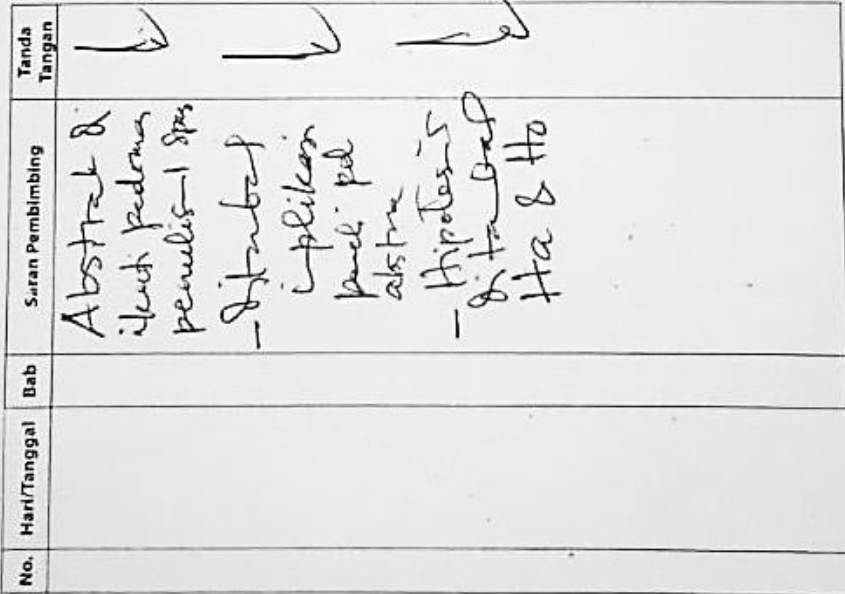 No. Hari/Tanggal Bab Saran Pembimbing Tanda Tangan
Abstrak di
ikuti pedoman
penulis
- Ditambah
implikasi
pd
abstra
- Hipotesis
ditambah
Ha & Ho